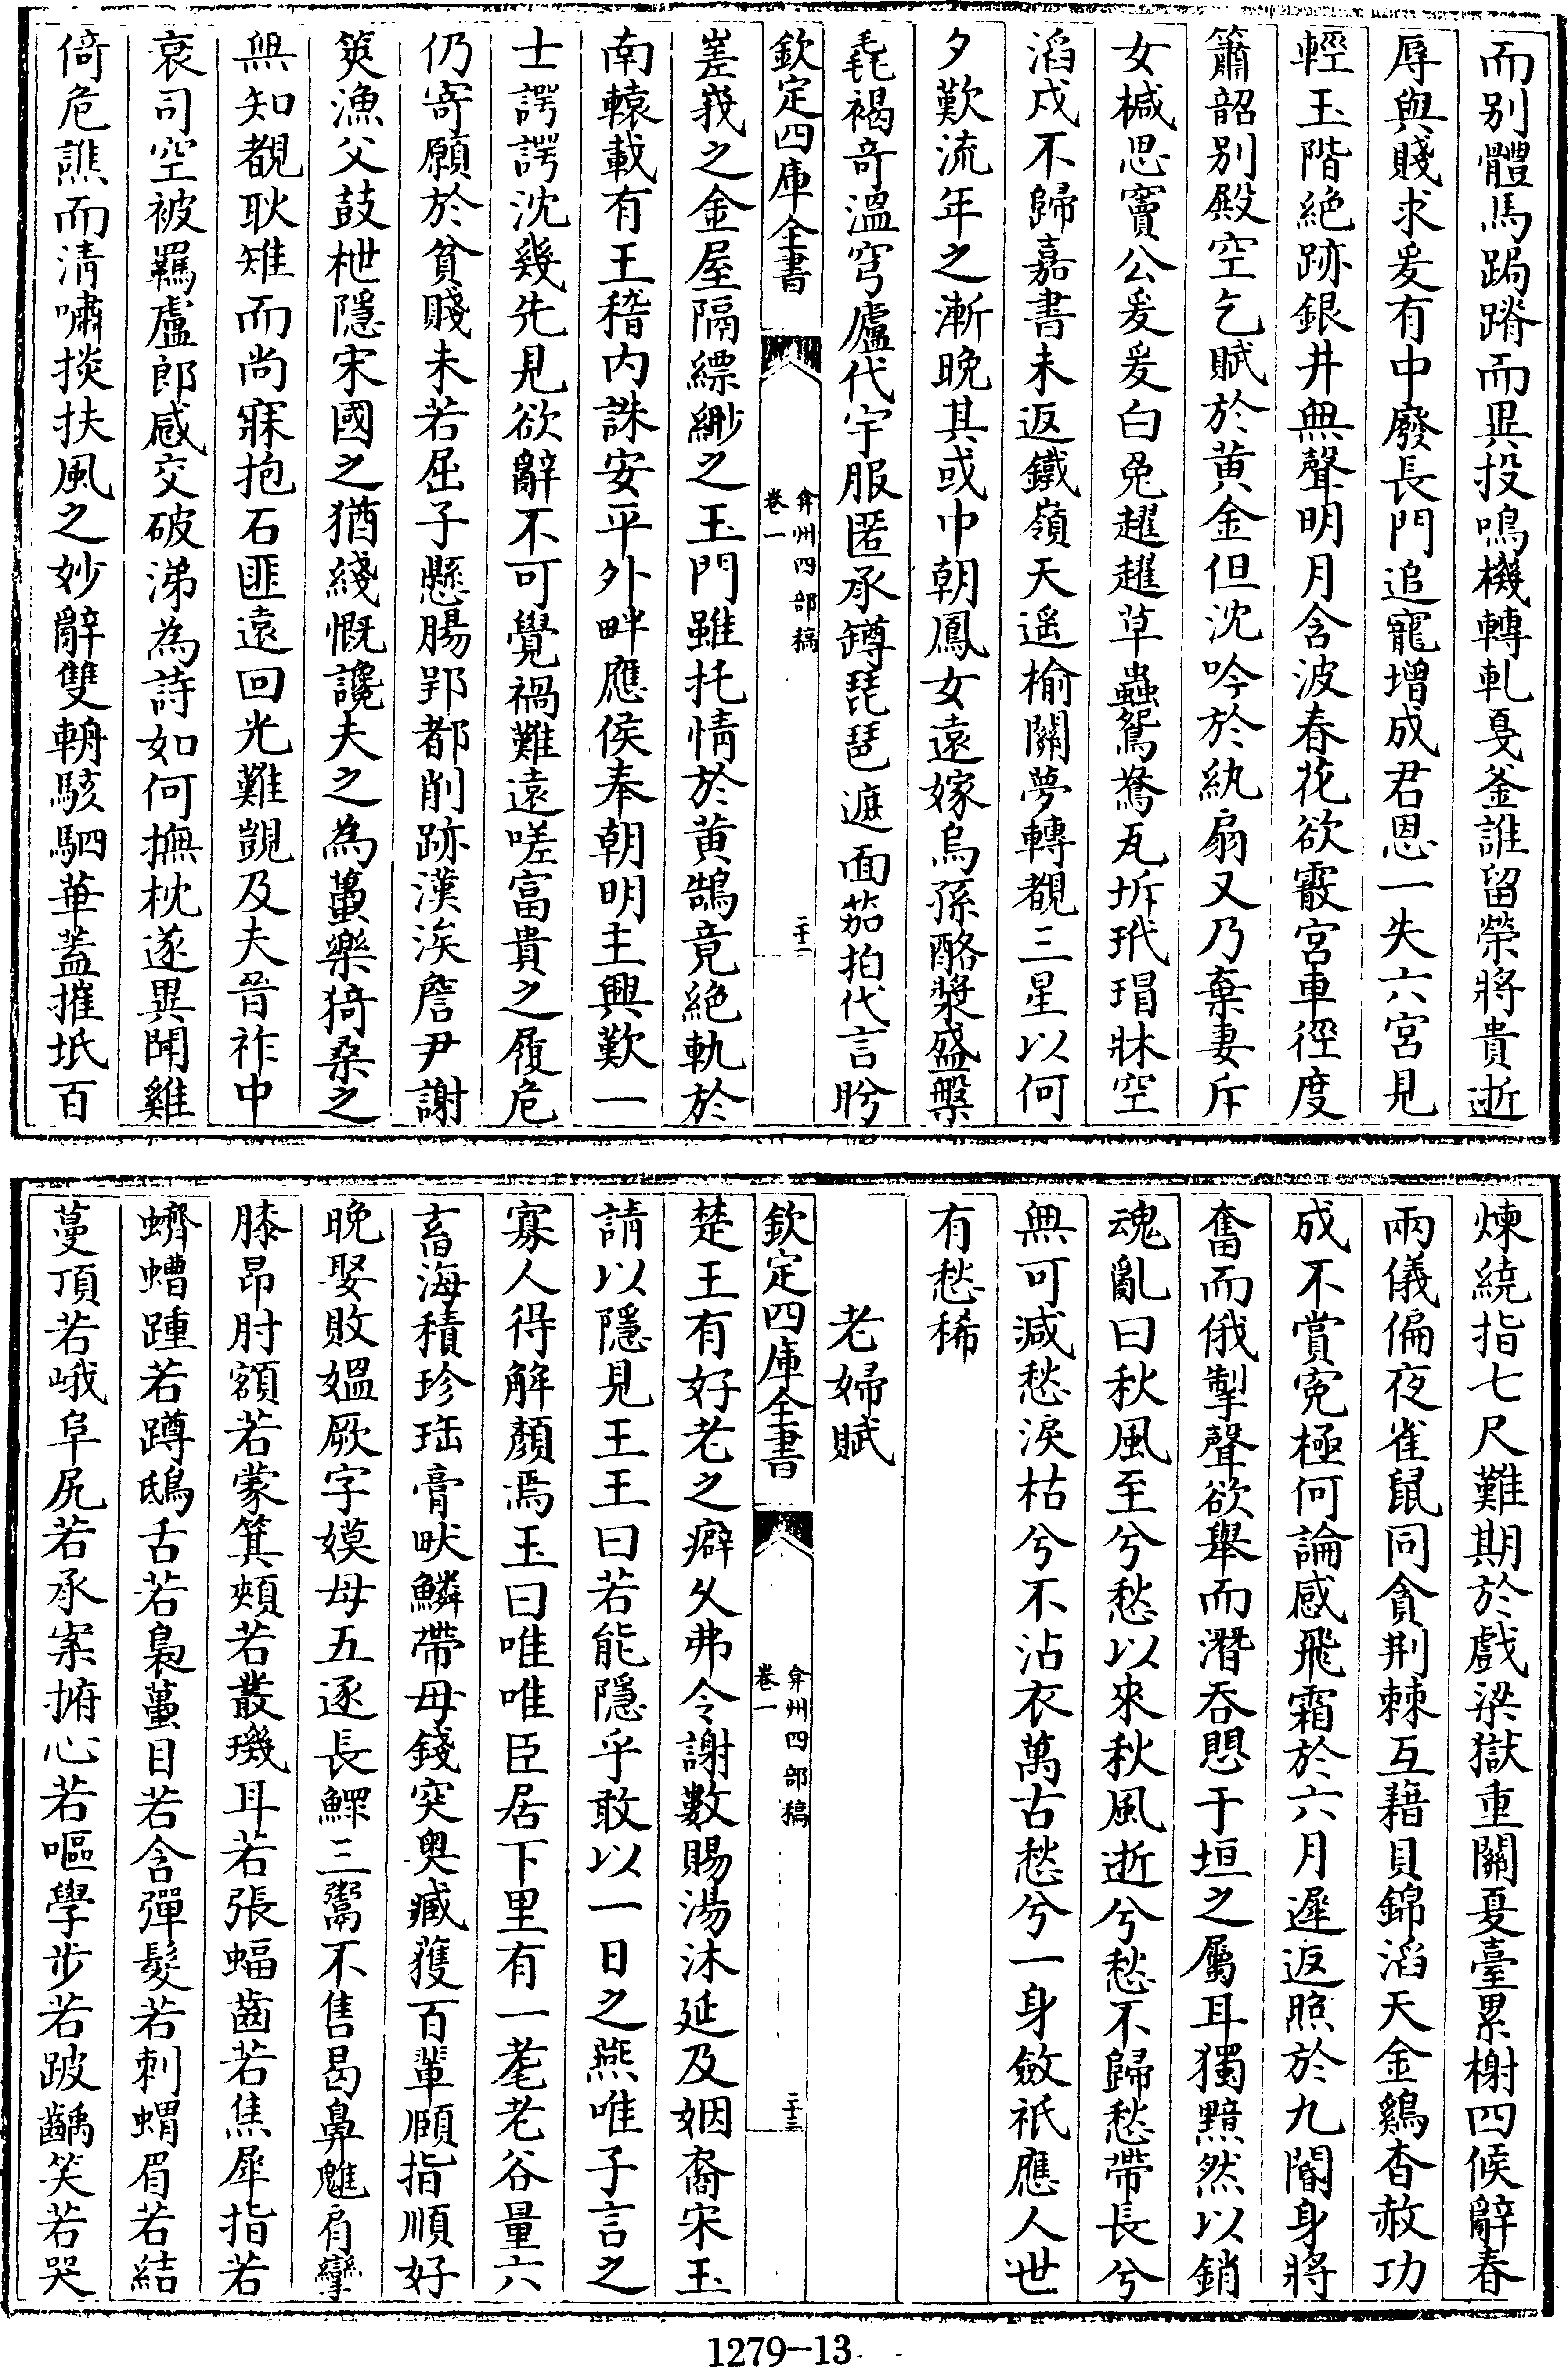 而别體馬跼蹐而異投鳴機轉軋戛釜誰留榮將貴逝
辱與賤求爰有中廢長門追寵增成君恩一失六宮見
輕玉階絶跡銀井無聲明月含波春花欲霰宮車徑度
簫韶别殿空乞賦於黄金但沈吟於紈扇又乃棄妻斥
女椷思竇公爰爰白兔趯趯草蟲鴛鴦瓦坼玳瑁牀空
滔戍不歸嘉書未返鐵嶺天遥榆關夢轉覩三星以何
夕歎流年之漸晚其或巾朝鳳女遠嫁烏孫酪漿盛槃
毳褐奇溫穹廬代宇服匿承罇琵琶遮面茄拍代言盻
欽定四庫全書
弇州四部稿
卷一
二十二
嵳峩之金屋隔縹緲之玉門雖托情於黄鵠竟絶軌於
南轅載有王稽内誅安平外畔應侯奉朝明主興歎一
士諤諤沈幾先見欲辭不可覺禍難遠嗟富貴之履危
仍寄願於貧賤未若屈子懸腸郢都削跡漢涘詹尹謝
筴漁父鼓枻隱宋國之猶綫慨讒夫之為蠆樂猗桑之
無知覩耿雉而尚寐抱石匪遠回光難覬及夫晉祚中
衰司空被羈盧郎感交破涕為詩如何撫枕遂異聞雞
倚危譙而清嘯掞扶風之妙辭雙輈駭駟華蓋摧坻百
煉繞指七尺難期於戲梁獄重關夏臺累榭四候辭春
兩儀偏夜雀鼠同貪荆棘互藉貝錦滔天金鷄杳赦功
成不賞寃極何論感飛霜於六月遲返照於九閽身將
奮而俄掣聲欲舉而潛吞愳于垣之屬耳獨黯然以銷
魂亂曰秋風至兮愁以來秋風逝兮愁不歸愁帶長兮
無可減愁淚枯兮不沾衣萬古愁兮一身斂祇應人世
有愁稀
老婦賦
欽定四庫全書
弇州四部稿
卷一
二十三
楚王有好老之癖夂弗令謝數賜湯沐延及姻裔宋玉
請以隱見王王曰若能隱乎敢以一日之燕唯子言之
寡人得解顏焉玉曰唯唯臣居下里有一耄老谷量六
畜海積珍珤膏畎鱗帶母錢突奥臧獲百輩頤指順好
晚娶敗媼厥字嫫母五逐長鰥三鬻不售曷鼻魋肩攣
膝昂肘額若蒙箕頰若叢璣耳若張蝠齒若焦犀指若
蠐螬踵若蹲鴟舌若裊蠆目若含彈髮若刺蝟眉若結
蔓頂若峨阜尻若承案擗心若嘔學步若跛齲笑若哭
1279-13